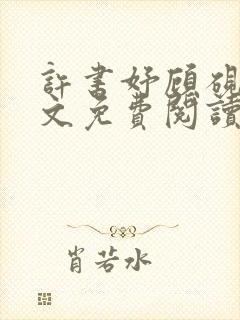 許書妤顧硯
文免費閱讀
肖若水